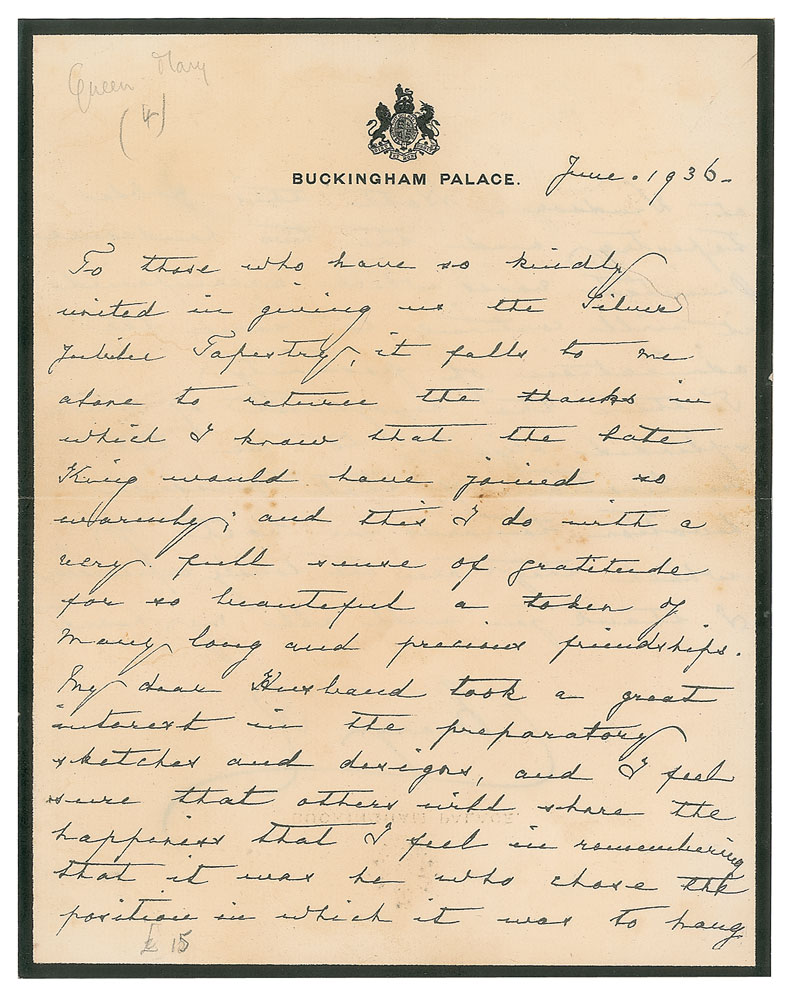 Queen Mary
(4)
BUCKINGHAM PALACE.
June. 1936.
To those who have so kindly
united in giving us the Silver
Jubilee Tapestry, it falls to me
alone to return the thanks in
which I know that the late
King would have joined so
warmly; and this I do with a
very full sense of gratitude
for so beautiful a token of
many long and precious friendships.
My dear Husband took a great
interest in the preparatory
sketches and designs, and I feel
sure that others will share the
happiness that I feel in remembering
that it was he who chose the
position in which it was to hang
£ 15